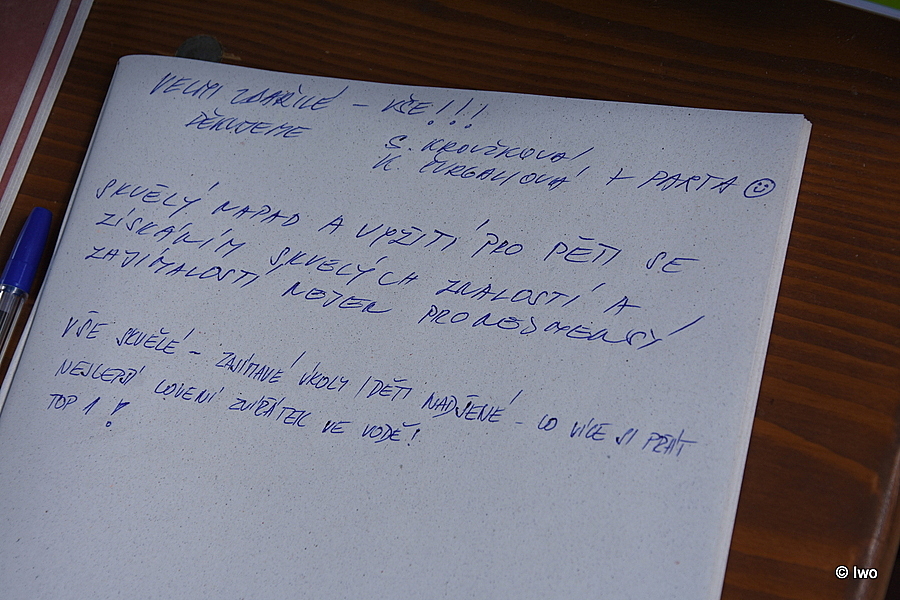 VELMI ZDAŘILÉ – VŠE!!!
DĚKUJEME
S. KROUŽKOVÁ
K. + PARTA ☺
SKVĚLÝ NÁPAD A VYŽITÍ PRO DĚTI SE
ZÍSKÁNÍM SKVĚLÝCH ZNALOSTÍ A
ZAJÍMALOSTÍ NEJEN PRO NEJMENŠÍ
VŠE SKVĚLÉ – ZAJÍMAVÉ ÚKOLY / DĚTI NADŠENÉ – CO VÍCE SI PŘÁT
NEJLEPŠÍ LOVENÍ ZVÍŘÁTEK VE VODĚ!
TOP 1!
© Iwo